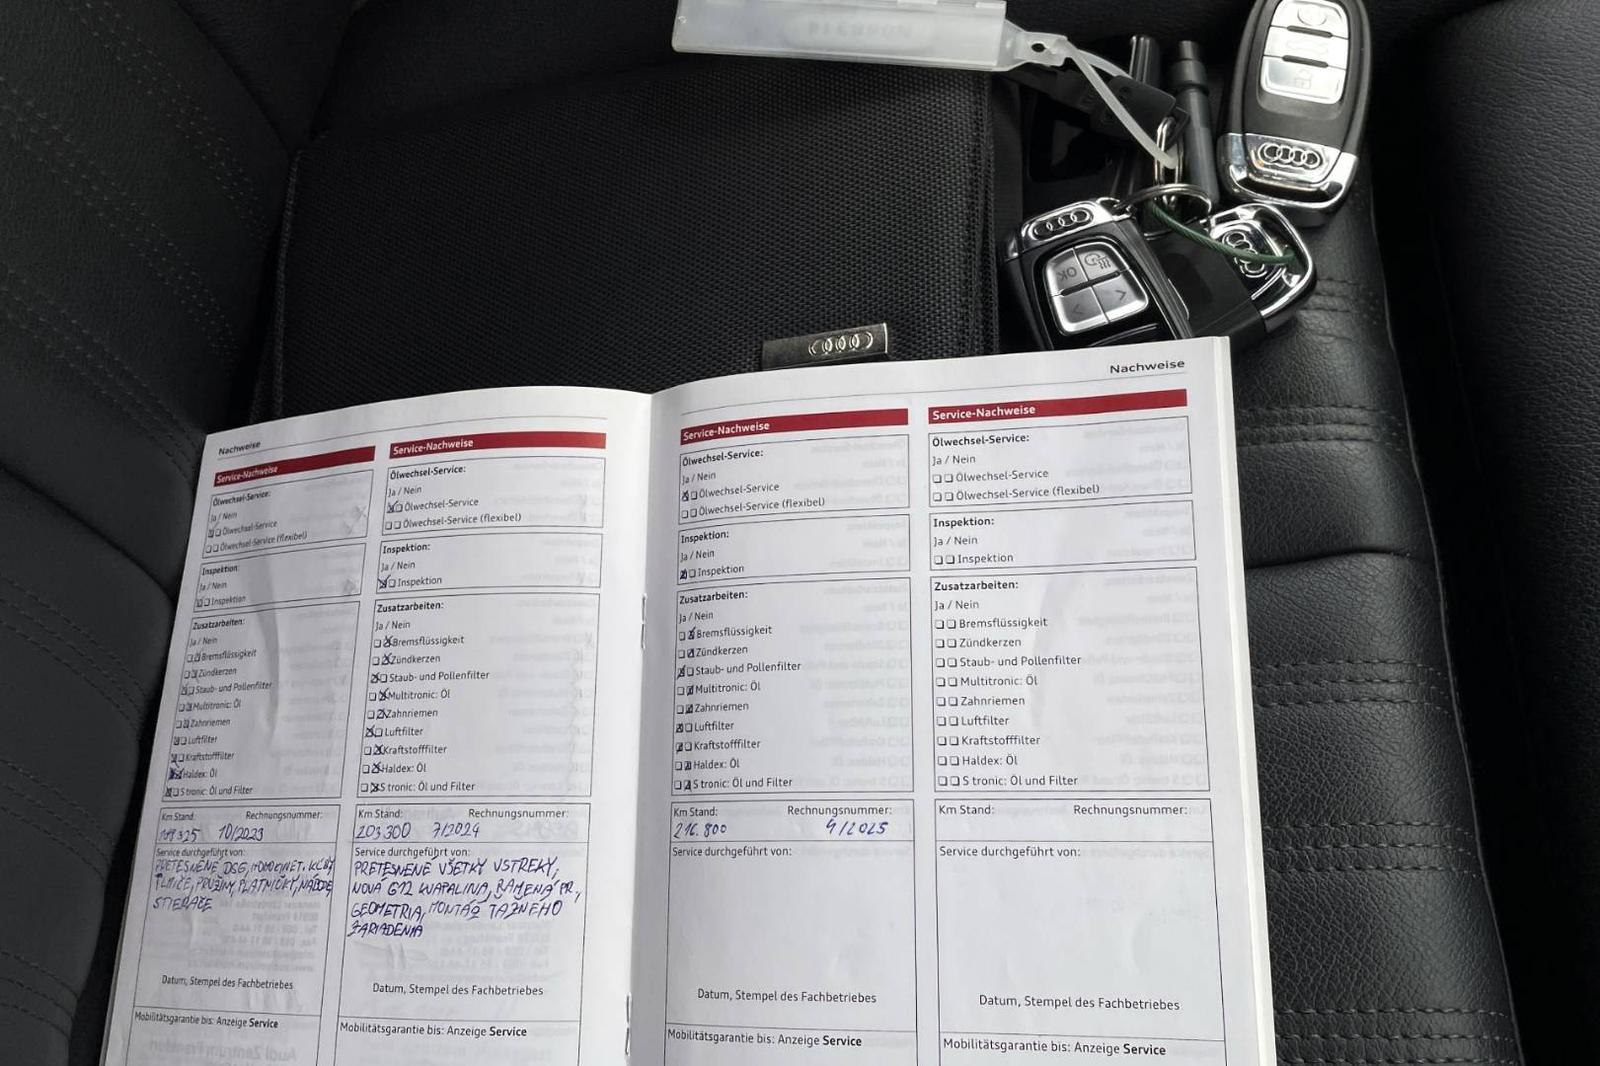 OK
Nachweise
Service-Nachweise
Ölwechsel-Service:
Ja / Nein
Ölwechsel-Service
Ölwechsel-Service (flexibel)
Inspektion:
Ja / Nein
Inspektion
Zusatzarbeiten:
Ja / Nein
Bremsflüssigkeit
Zündkerzen
Staub- und Pollenfilter
Multitronic: Öl
Zahnriemen
Luftfilter
Kraftstofffilter
Haldex: Öl
S tronic: Öl und Filter
Km Stand: Rechnungsnummer:
10/2023
Service durchgeführt von:
PRETESNENÉ DSG, HOMOKINET. KĹBY
TLMIČE, PRUŽINY, PLATNIČKY,
STIERAČE
Datum, Stempel des Fachbetriebes
Mobilitätsgarantie bis: Anzeige Service
Service-Nachweise
Ölwechsel-Service:
Ja / Nein
Ölwechsel-Service
Ölwechsel-Service (flexibel)
Inspektion:
Ja / Nein
Inspektion
Zusatzarbeiten:
Ja / Nein
Bremsflüssigkeit
Zündkerzen
Staub- und Pollenfilter
Multitronic: Öl
Zahnriemen
Luftfilter
Kraftstofffilter
Haldex: Öl
S tronic: Öl und Filter
Km Stand: Rechnungsnummer:
203.300 7/2024
Service durchgeführt von:
PRETESNENÉ VŠETKY VSTREKY,
NOVÁ G12 KVAPALINA, RAMENÁ PR.,
GEOMETRIA, MONTÁŽ ŤAŽNÉHO
ZARIADENIA
Datum, Stempel des Fachbetriebes
Mobilitätsgarantie bis: Anzeige Service
Nachweise
Service-Nachweise
Ölwechsel-Service:
Ja / Nein
Ölwechsel-Service
Ölwechsel-Service (flexibel)
Inspektion:
Ja / Nein
Inspektion
Zusatzarbeiten:
Ja / Nein
Bremsflüssigkeit
Zündkerzen
Staub- und Pollenfilter
Multitronic: Öl
Zahnriemen
Luftfilter
Kraftstofffilter
Haldex: Öl
S tronic: Öl und Filter
Km Stand: Rechnungsnummer:
216.800 4/2025
Service durchgeführt von:
Datum, Stempel des Fachbetriebes
Mobilitätsgarantie bis: Anzeige Service
Service-Nachweise
Ölwechsel-Service:
Ja / Nein
Ölwechsel-Service
Ölwechsel-Service (flexibel)
Inspektion:
Ja / Nein
Inspektion
Zusatzarbeiten:
Ja / Nein
Bremsflüssigkeit
Zündkerzen
Staub- und Pollenfilter
Multitronic: Öl
Zahnriemen
Luftfilter
Kraftstofffilter
Haldex: Öl
S tronic: Öl und Filter
Km Stand: Rechnungsnummer:
Service durchgeführt von:
Datum, Stempel des Fachbetriebes
Mobilitätsgarantie bis: Anzeige Service